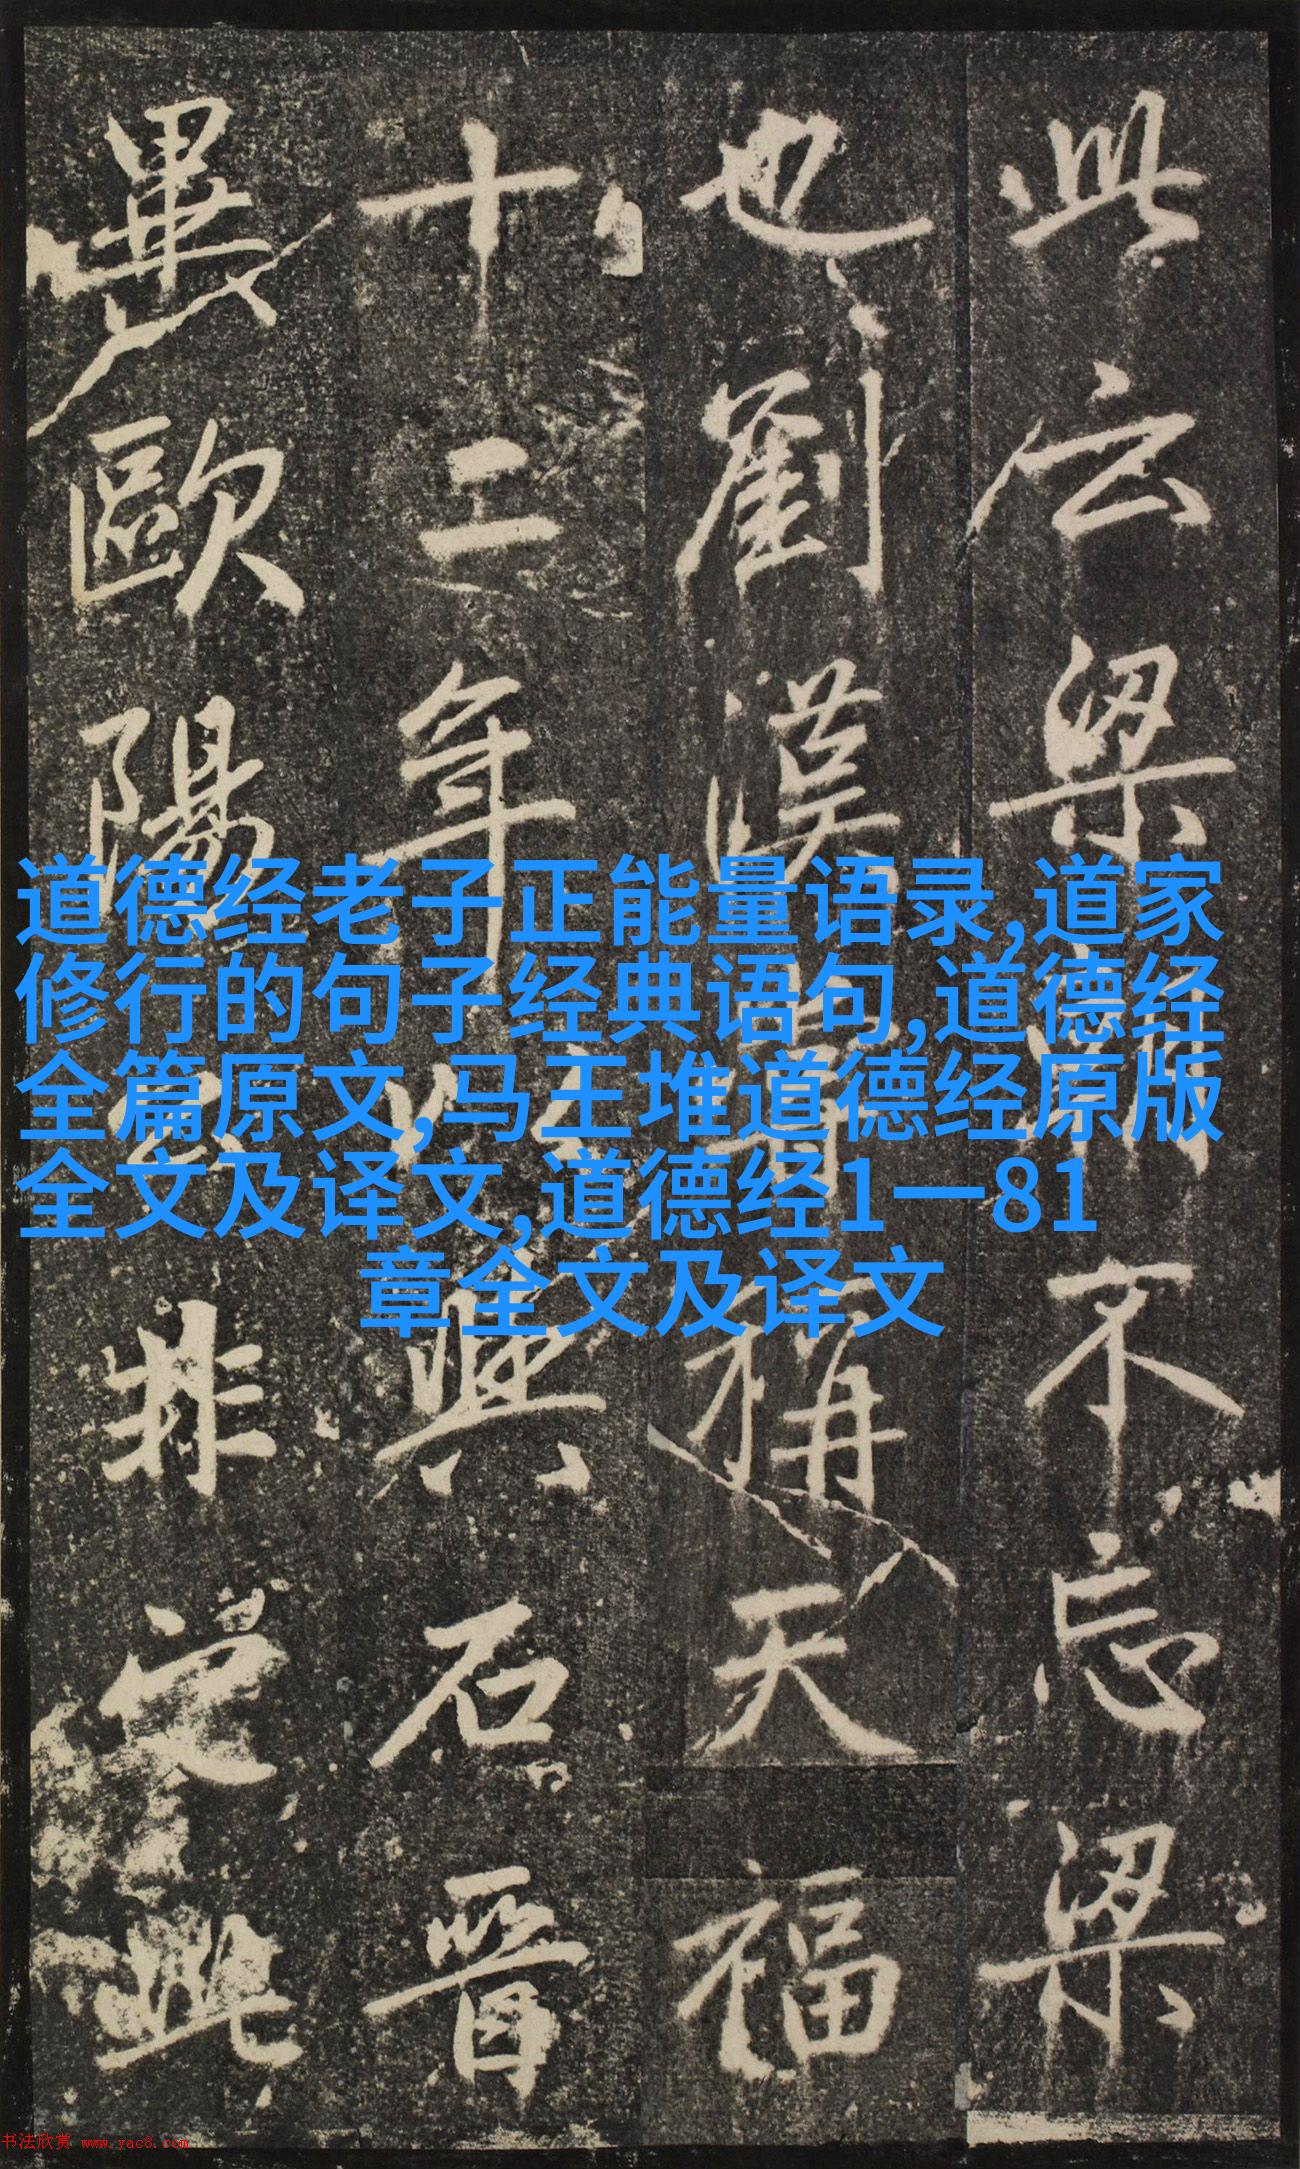 此云梁不忘梁
也劉漢稱天福
十二年以興石晉
畢歐陽非此
道德经老子正能量语录,道家
修行的句子经典语句,道德经
全篇原文,马王堆道德经原版
全文及译文,道德经1一81
章全文及译文
书法欣赏 www.yac8.com